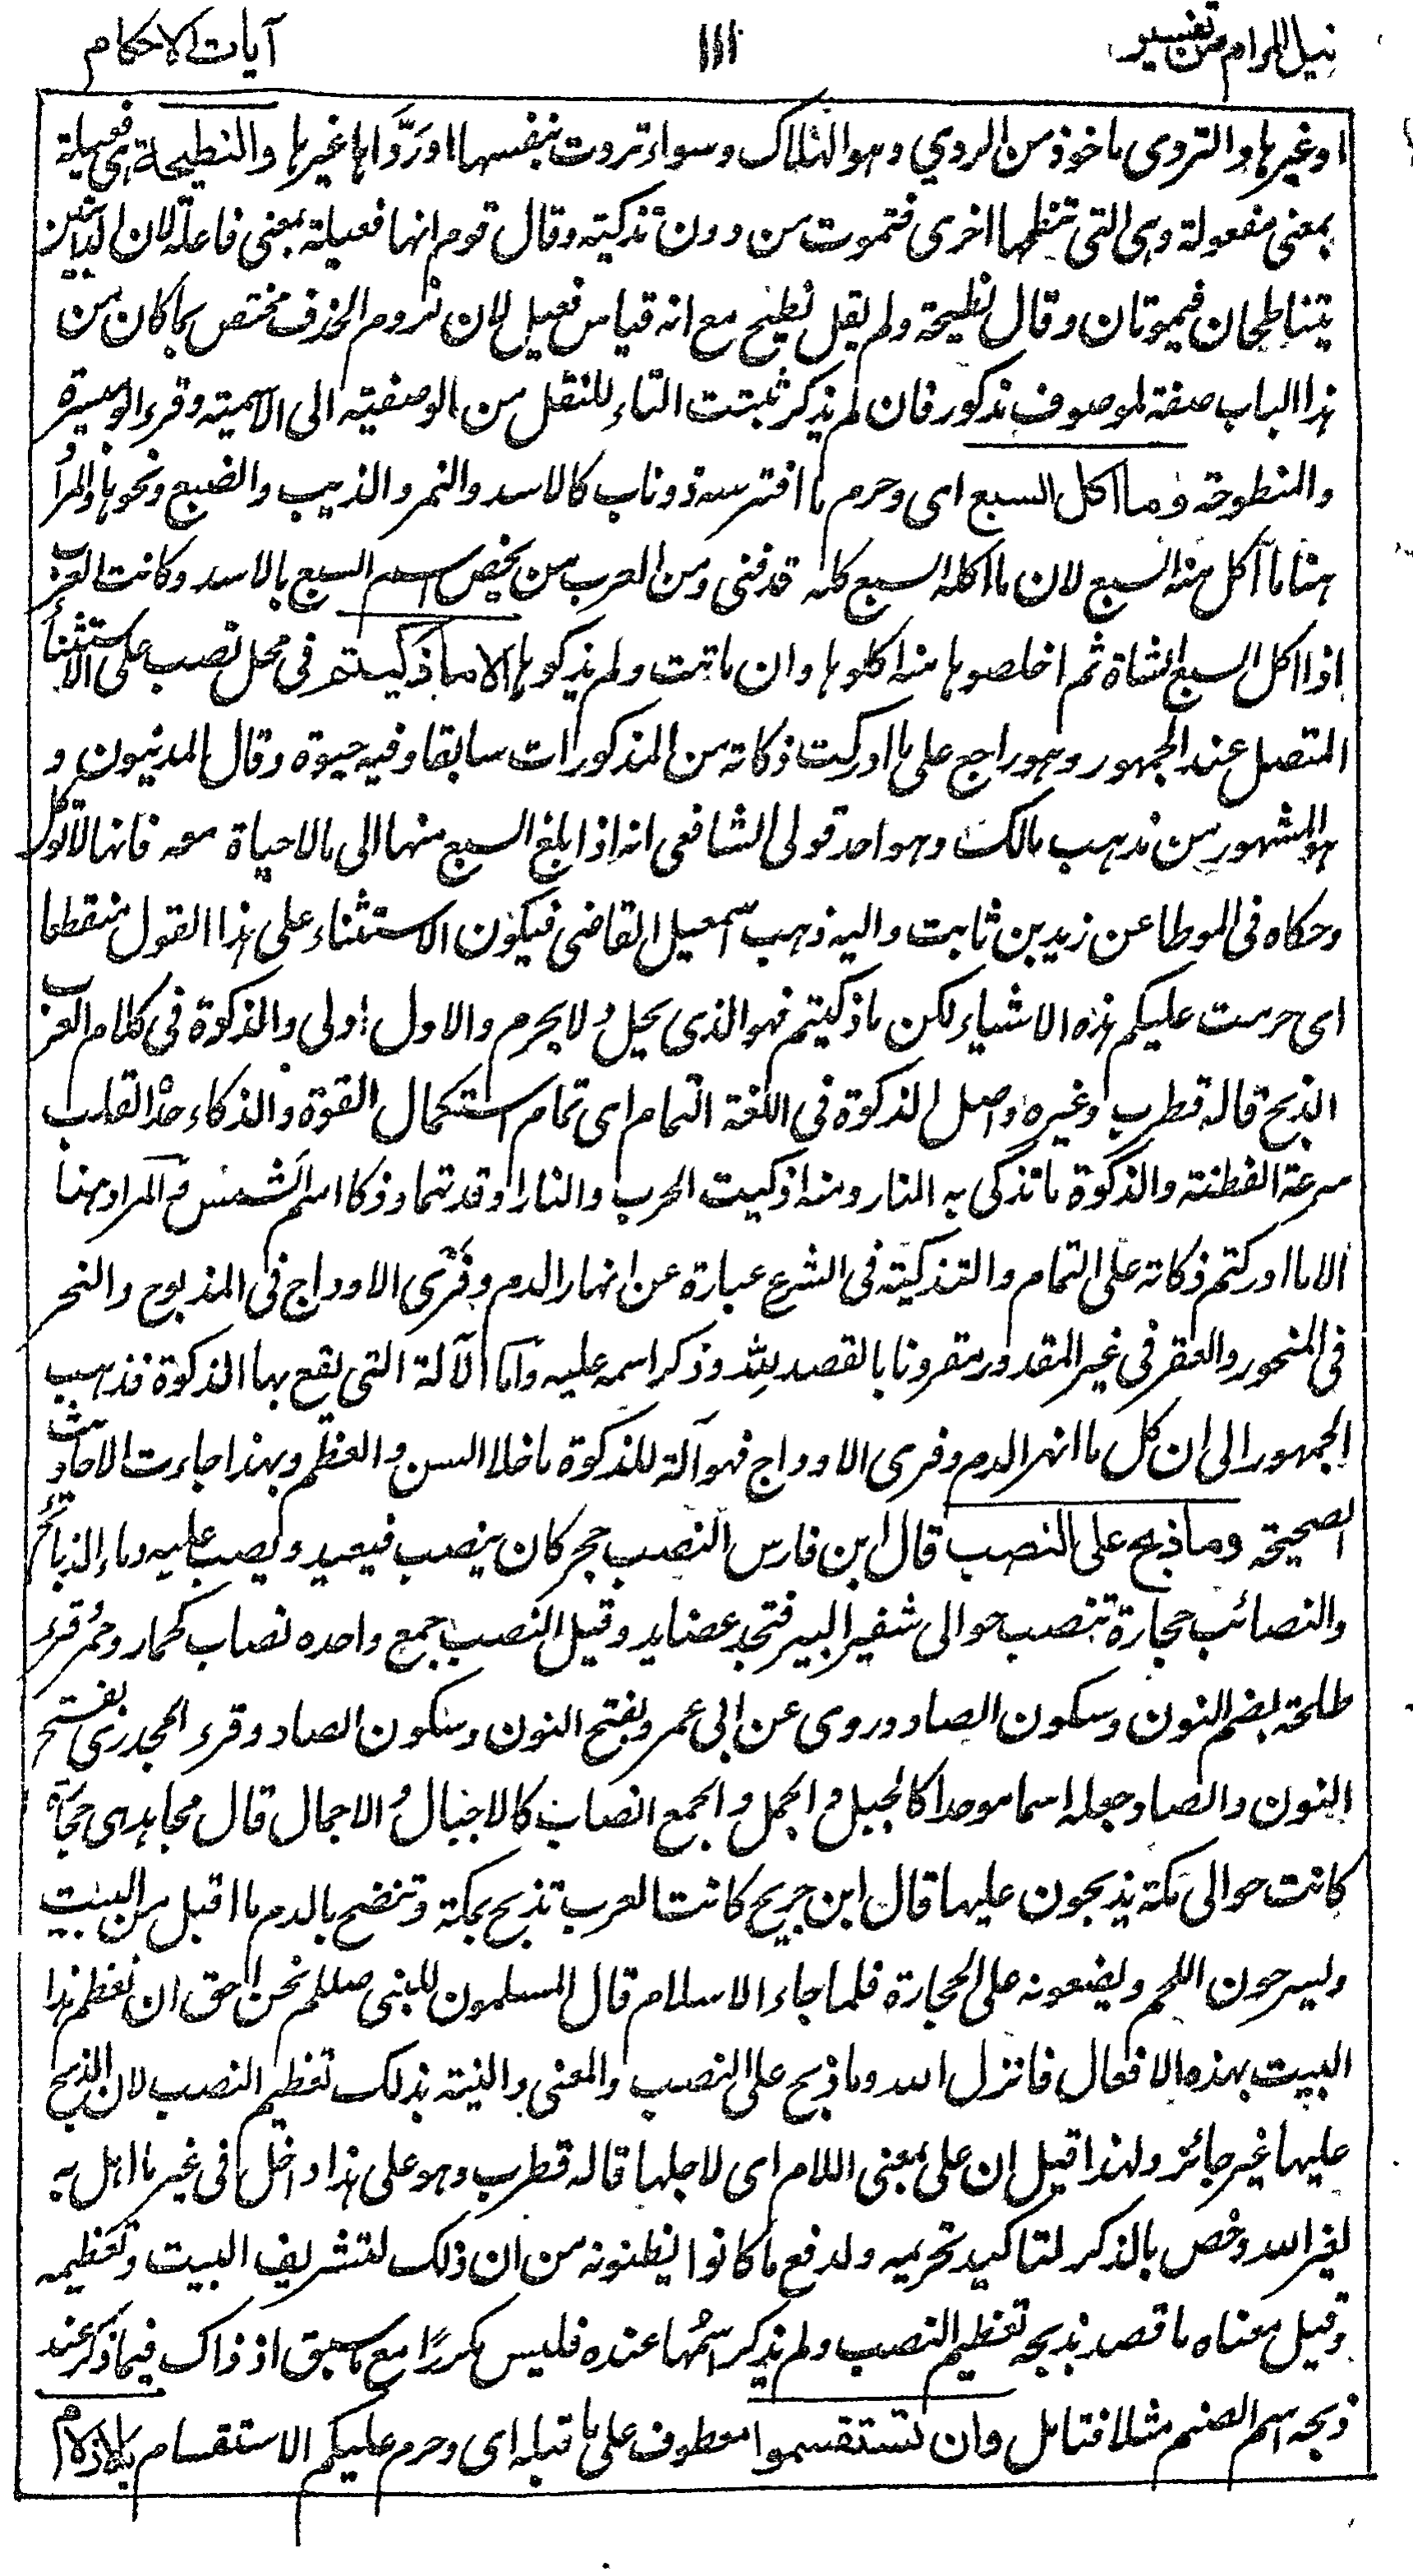 نيل المرام من تفسير
١١١
آيات الاحكام
او غيرها والتردى ماخوذ من الردي وهو الهلاك وسواء تردت بنفسها او رَدَّاها غيرها والنطيحة هى فعيلة
بمعنى مفعولة وهى التى تنطحها اخرى فتموت من دون تذكية وقال قوم انها فعيلة بمعنى فاعلة لان الدابتين
يتناطحان فيموتان وقال نطيحة ولم يقل نطيح مع انه قياس فعيل لان لزوم الحذف مختص بما كان من
هذا الباب صفة لموصوف مذكور فان لم يذكر ثبتت التاء للنقل من الوصفية الى الاسمية وقرء ابو ميسرة
والمنطوحة وما اكل السبع اى وحرم ما افترسه ذو ناب كالاسد والنمر والذيب والضبع ونحوها والمراد
هنا ما اكل منه السبع لان ما اكله السبع كله قد فنى ومن العرب من يخص اسم السبع بالاسد وكانت العرب
اذا اكل السبع الشاة ثم اخلصوها منه اكلوها وان ماتت ولم يذكوها الا ما ذكيتم فى محل نصب على الاستثناء
المتصل عند الجمهور وهو راجع على ما ادركت ذكاته من المذكورات سابقا وفيه حيوة وقال المدنيون و
هو المشهور من مذهب مالك وهو احد قولى الشافعى انه اذا بلغ السبع منها الى ما لا حياة معه فانها لا توكل
وحكاه فى الموطا عن زيد بن ثابت واليه ذهب اسمعيل القاضى فيكون الاستثناء على هذا القول منقطعا
اى حرمت عليكم هذه الاشياء لكن ما ذكيتم فهو الذى يحل ولا يحرم والاول اولى والذكوة فى كلام العرب
الذبح قاله قطرب وغيره واصل الذكوة فى اللغة التمام اى تمام استكمال القوة والذكاء حدة القلب
سرعة الفطنة والذكوة ما تذكى به النار ومنه اذكيت الحرب والنار اوقدتهما وذكا اسم الشمس والمراد هنا
الا ما ادركتم ذكاته على التمام والتذكية فى الشرع عبارة عن انهار الدم وفَرْى الاوداج فى المذبوح والنحر
فى المنحور والعقر فى غير المقدور مقرونا بالقصد لله وذكر اسمه عليه واما الآلة التى يقع بها الذكوة فذهب
الجمهور الى ان كل ما انهر الدم وفرى الاوداج فهو آلة للذكوة ما خلا السن والعظم وبهذا جاءت الاحاديث
الصحيحة وما ذبح على النصب قال ابن فارس النصب حجر كان ينصب فيعبد ويصب عليه دماء الذبائح
والنصائب حجارة تنصب حوالى شفير البير فتجد عضايد وقيل النصب جمع واحده نصاب كحمار وحُمُر قرء
طلحة بضم النون وسكون الصاد وروى عن ابى عمرو بفتح النون وسكون الصاد وقرء الجحدرى بفتح
النون والصاد جعله اسما موحدا كالجبل والجمل والجمع انصاب كالاجبال والاجمال قال مجاهد هى حجارة
كانت حوالى مكة يذبحون عليها قال ابن جريج كانت العرب تذبح بمكة وتنضح بالدم ما اقبل من البيت
ويسرحون اللحم ويضعونه على الحجارة فلما جاء الاسلام قال المسلمون للنبى صللم نحن احق ان نعظم هذا
البيت بهذه الافعال فانزل الله وما ذبح على النصب والمعنى والنية بذلك تعظيم النصب لان الذبح
عليها غير جائز ولهذا قيل ان على بمعنى اللام اى لاجلها قاله قطرب وهو على هذا داخل فى غير ما اهل به
لغير الله وخص بالذكر لتاكيد تحريمه ولدفع ما كانوا يظنونه من ان ذلك لتشريف البيت وتعظيمه
وقيل معناه ما قصد بذبحه تعظيم النصب ولم يذكر اسمُها عنده فليس مكررًا مع ما سبق اذ ذاك فيما ذكر عند
ذبحه اسم الصنم مثلا فتامل وان تستقسموا معطوف على ما قبله اى وحرم عليكم الاستقسام بالازلام